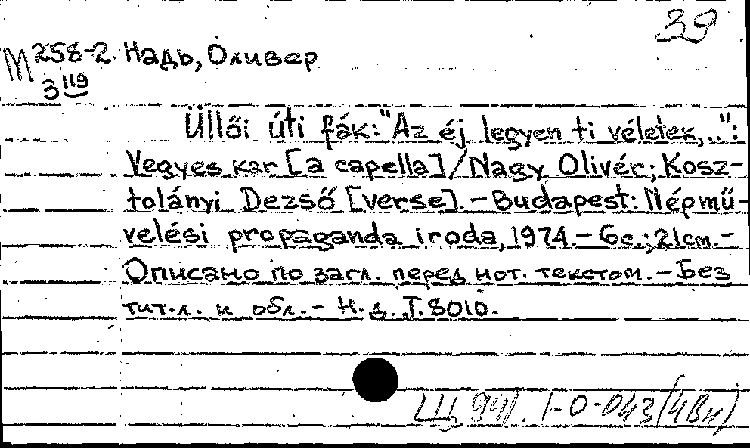 39
М 258-2 Надь, Оливер
3 119
Üllői úti fák: "Az éj legyen ti véletek,..":
Vegyes kar [a capella]/Nagy Olivér; Kosz-
tolányi Dezső [verse]. – Budapest: Népmű-
velési propaganda iroda, 1974. – 6с.; 21cm. –
Описано по загл. перед нот. текстом. – Без
тит. л. и обл. – Н. д. Т. 8010.
1-0-043 (4Вн)